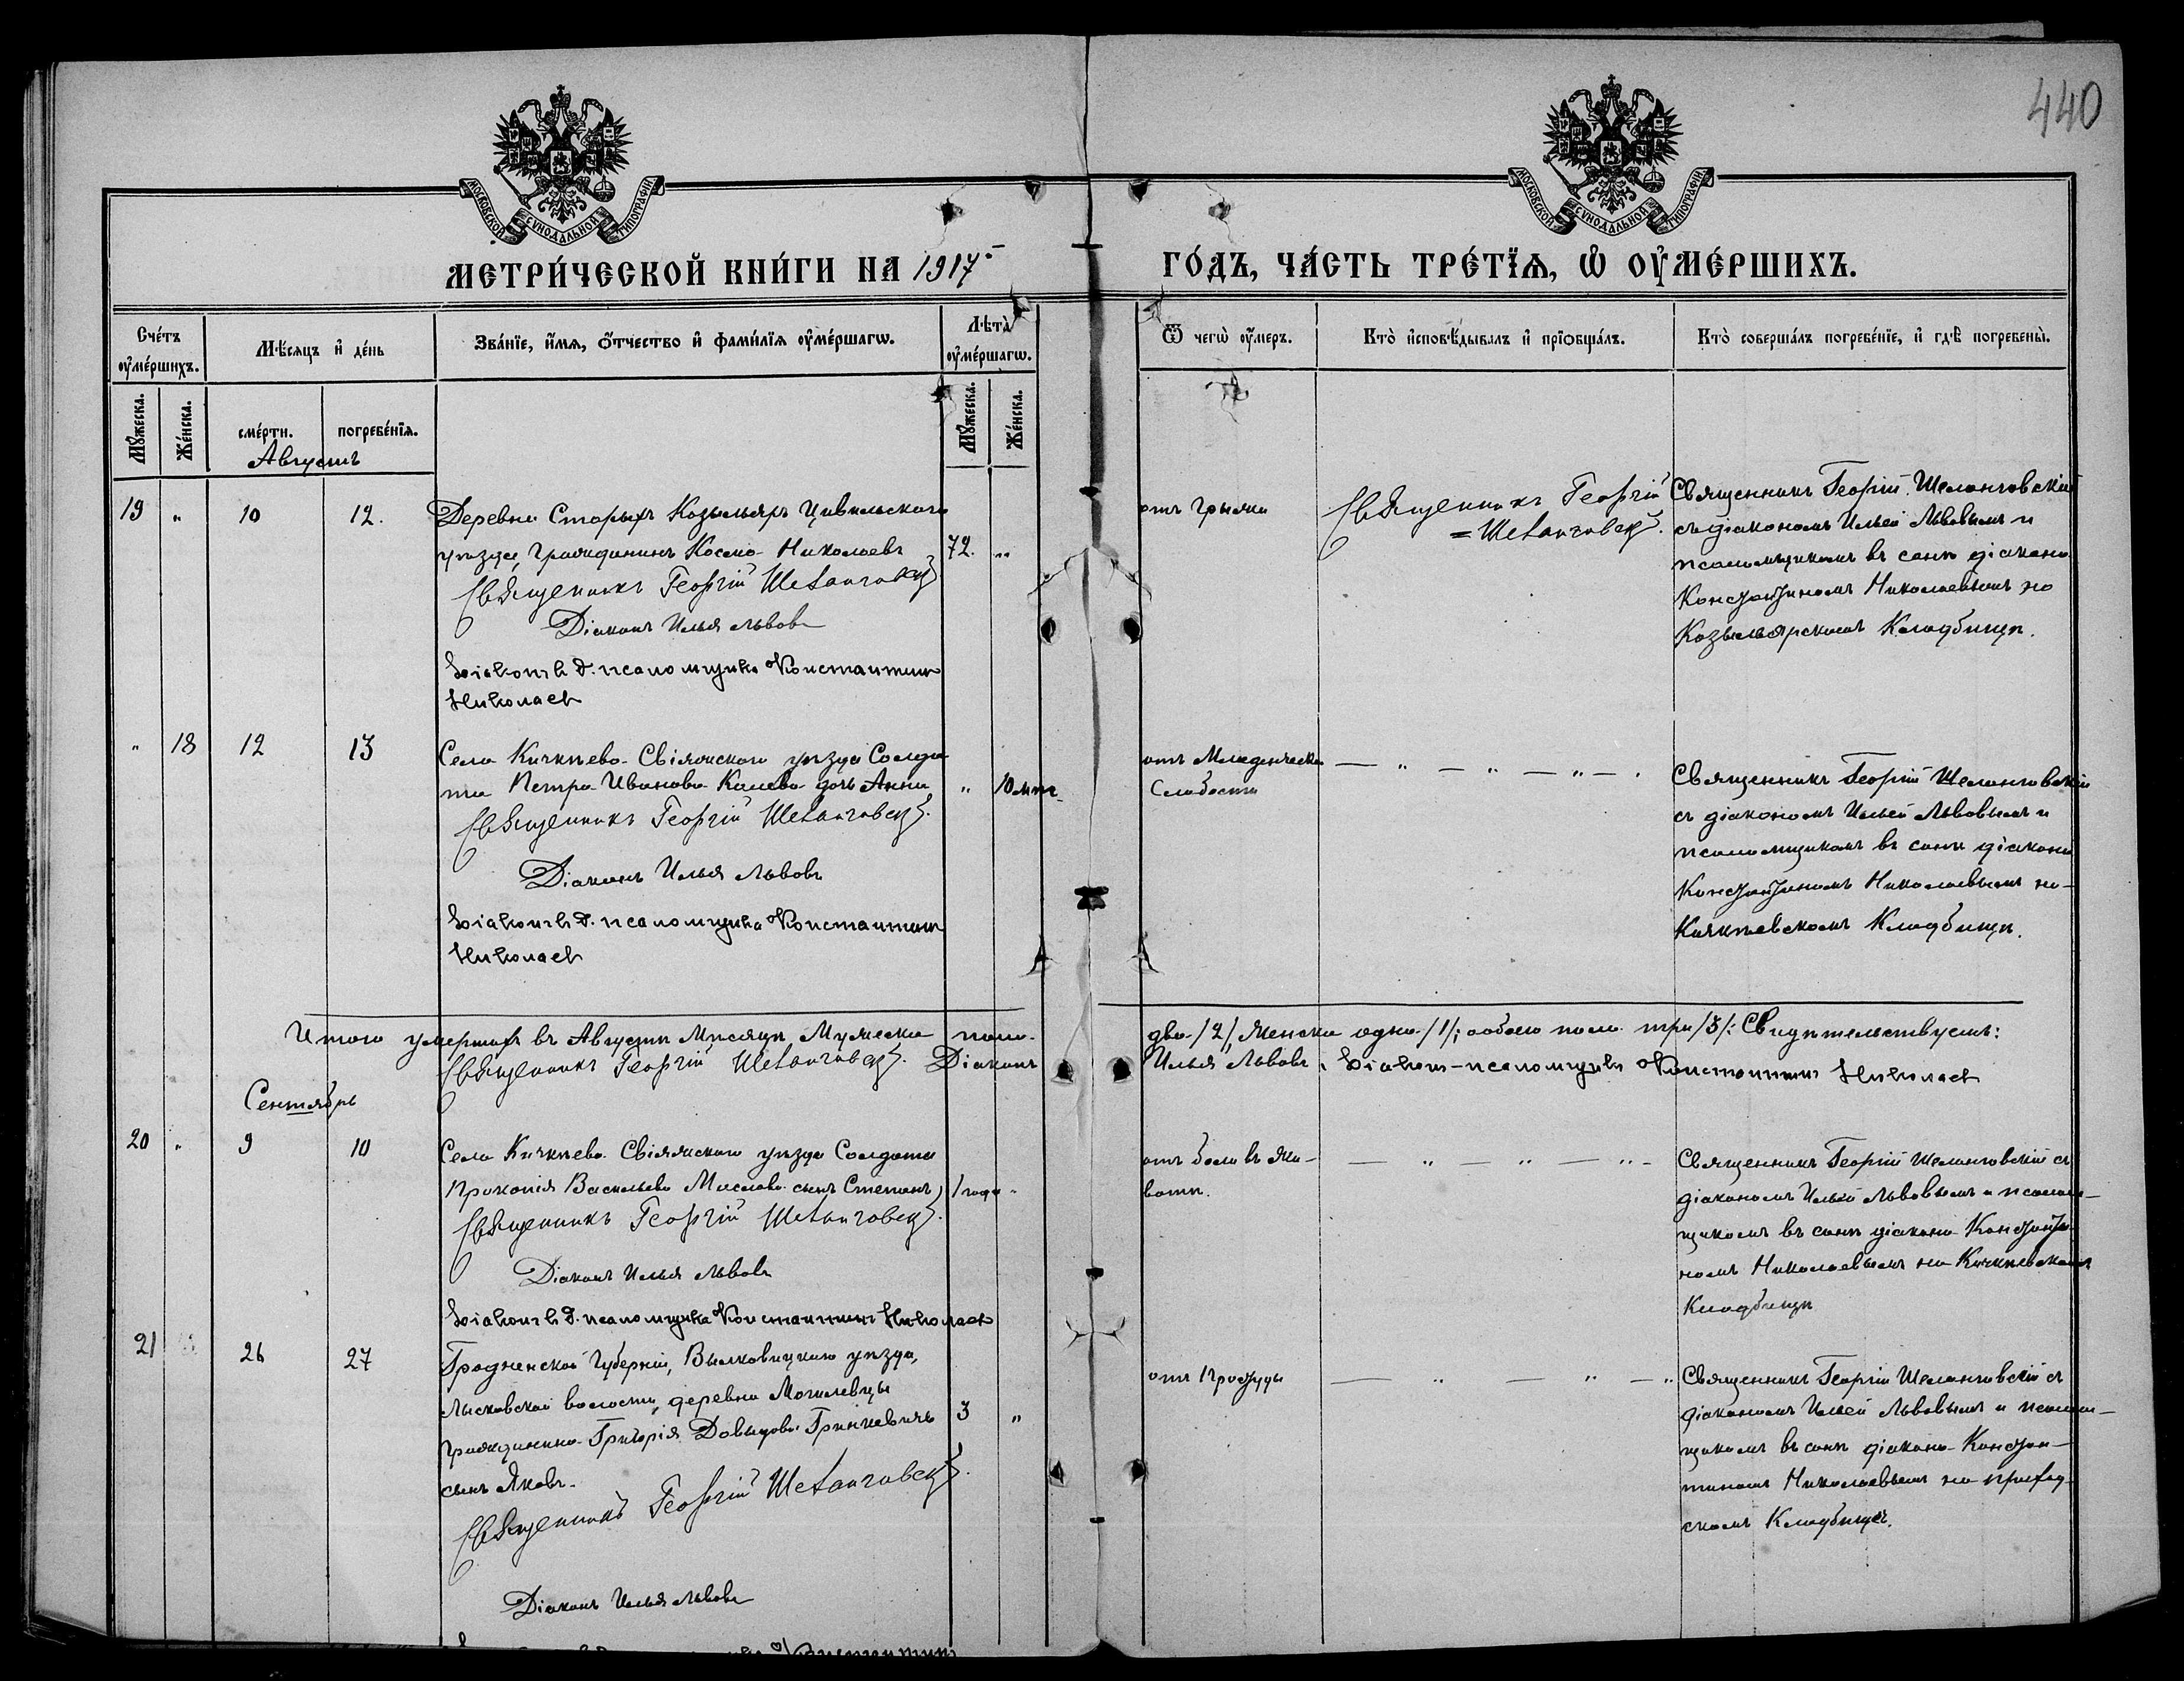 440
МОСКОВСКОЙ СѴНОДАЛЬНОЙ ТИПОГРАФІИ
МОСКОВСКОЙ СѴНОДАЛЬНОЙ ТИПОГРАФІИ
МЕТРИ́ЧЕСКОЙ КНИ́ГИ НА 1917
ГО́ДЪ, ЧА́СТЬ ТРЕ́ТЇѦ, Ѡ҆ ОУ҆МЕ́РШИХЪ.
Сче́тъ оу҆ме́ршихъ.
Мꙋ́жеска.
Же́нска.
Мѣ́сѧцъ и҆ де́нь
сме́рти.
погребе́нїѧ.
Зва́нїе, и҆́мѧ, ѻ҆́тчество и҆ фами́лїѧ оу҆ме́ршагѡ.
Лѣ́та оу҆ме́ршагѡ.
Мꙋ́жеска.
Же́нска.
Ѿ чегѡ̀ оу҆́меръ.
Кто̀ и҆сповѣ́дывалъ и҆ прїѻбща́лъ.
Кто̀ соверша́лъ погребе́нїе, и҆ гдѣ̀ погребены̀.
Августъ
19 " 10 12.
Деревни Старыхъ Козыльяръ Цивильскаго
уѣзда, гражданинъ Косма Николаевъ
72. "
Священникъ Георгій Шеланговскій.
Діаконъ Илья Львовъ
Діаконъ и д. псаломщика Константинъ
Николаевъ
отъ грыжи
Священникъ Георгій
= Шеланговскій.
Священникъ Георгій Шеланговскій
съ діакономъ Ильей Львовымъ и
псаломщикомъ въ санѣ діакона
Константиномъ Николаевымъ на
Козыльярскомъ Кладбищѣ.
" 18 12 13
Села Кичкѣева Свіяжскаго уѣзда Солда
та Петра Иванова Калева дочь Анна
" 10 мѣс.
Священникъ Георгій Шеланговскій.
Діаконъ Илья Львовъ
Діаконъ и д. псаломщика Константинъ
Николаевъ
отъ Младенческ.
Слабости
— " — " — " — "
Священникъ Георгій Шеланговскій
съ діакономъ Ильей Львовымъ и
псаломщикомъ въ санѣ діакона
Константиномъ Николаевымъ на
Кичкѣевскомъ Кладбищѣ.
Итого умершихъ въ Августѣ Мѣсяцѣ Мужеска пола
два /2/, Женска одна /1/; обоего пола три /3/: Свидѣтельствуемъ:
Священникъ Георгій Шеланговскій. Діаконъ
Илья Львовъ, Діаконъ-псаломщикъ Константинъ Николаевъ
Сентябрь
20 " 9 10
Села Кичкѣева Свіяжскаго уѣзда Солдата
Прокопія Васильева Маслова сынъ Степанъ
1 года "
Священникъ Георгій Шеланговскій.
Діаконъ Илья Львовъ
Діаконъ и д. псаломщика Константинъ Николаевъ
отъ боли въ жи-
вотѣ.
— " — " — " —
Священникъ Георгій Шеланговскій съ
діакономъ Ильей Львовымъ и псалом-
щикомъ въ санѣ діакона Константи-
номъ Николаевымъ на Кичкѣевскомъ
Кладбищѣ
21 26 27
Гродненской Губерніи, Вылковицкаго уѣзда,
Лысковской волости, деревни Могилевцы
гражданина Григорія Давыдова Гринкевичъ
сынъ Яковъ.
3 "
Священникъ Георгій Шеланговскій.
Діаконъ Илья Львовъ
отъ Простуды
— " — " — "
Священникъ Георгій Шеланговскій съ
діакономъ Ильей Львовымъ и псалом-
щикомъ въ санѣ діакона Констан-
тиномъ Николаевымъ на приход-
скомъ Кладбищѣ.